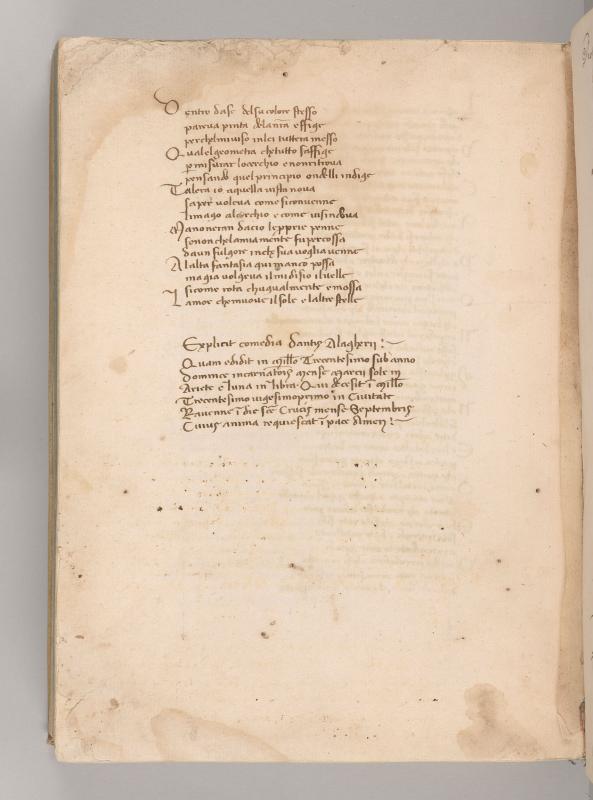 Dentro dase delsu colore stesso
pareua pinta delanrã effige
perchelmiuiso inlei tuttera messo
Qualelgeometra chetutto saffige
p misurar locerchio e nonritroua
pensando quel principio ondelli indige
Talera io aquella uista noua
saper uoleua come siconuenne
limago alcerchio e come uisindoua
Manoneran dacio leproprie penne
senonchelamia mente fu percossa
daun fulgore inche sua uoglia uenne
Alalta fantasia qui manco possa
ma gia uolgeua il mi disio iluelle
sicome rota chugualmente e mossa
Lamor chemuoue il sole e laltre stelle
Explicit comedia Dantis Alagherii :~
Quam edidit in Millo Trecentesimo sub anno
Dominice incarnatõis mense Marcii sole in
Ariete e luna in libra. Qui decesit ĩ Millo
Trecentesimo uigesimoprimo in Ciuitate
Rauenne ĩ die sce Crucis mense Septembris
Cuius anima requiescat ĩ pace Amen :~